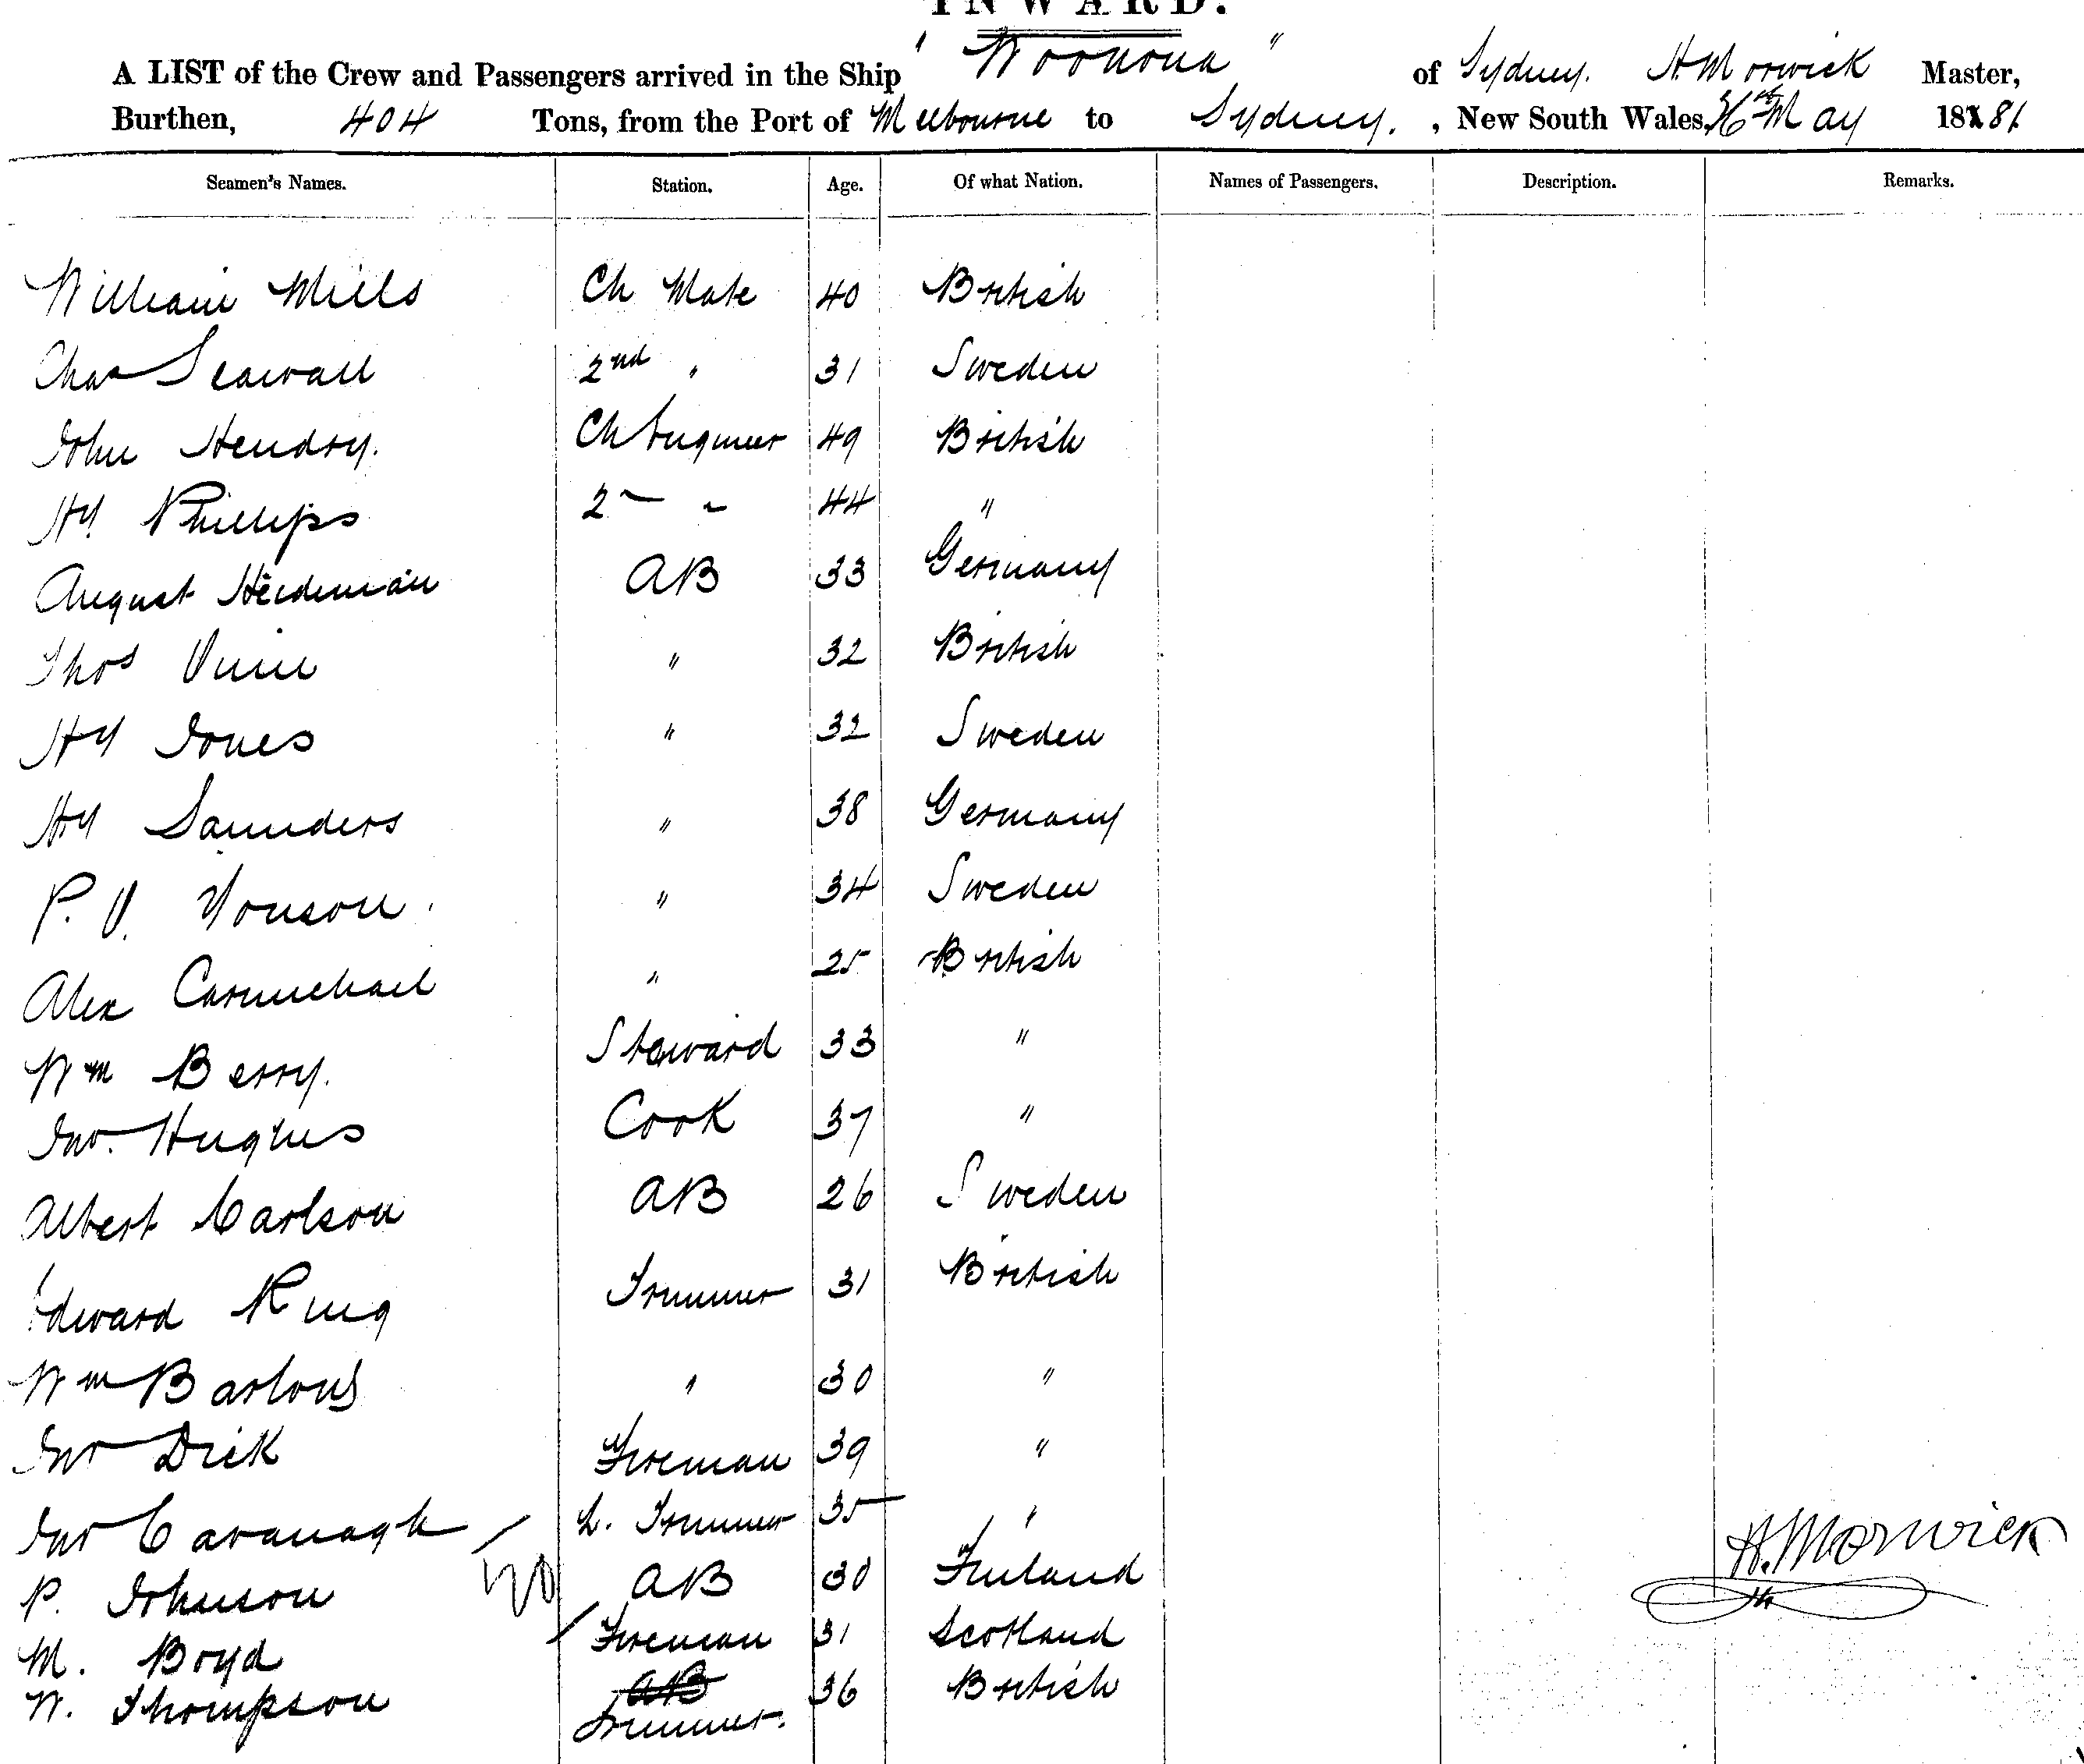 INWARD.
A LIST of the Crew and Passengers arrived in the Ship "Woonona" of Sydney. H. Morwick Master,
Burthen, 404 Tons, from the Port of Melbourne to Sydney. , New South Wales, May 1881.
Seamen's Names. Station. Age. Of what Nation. Names of Passengers. Description. Remarks.
William Mills Ch Mate 40 British
Chas 2nd " 31 Sweden
John Hendry. Ch Engineer 49 British
Hy Phillips 2 " 44 "
August Heideman AB 33 Germany
Thos Vine " 32 British
Hy Jones " 32 Sweden
Hy Saunders " 38 Germany
P. V. Youson " 34 Sweden
Alex Carmichael " 25 British
Wm Berry. Steward 33 "
Jno. Hughes Cook 37 "
Albert Carlson AB 26 Sweden
Edward King Trimmer 31 British
Wm " 30 "
Jno Dick Fireman 39 "
Jno Cavanagh L. Trimmer 35 "
P. Johnson AB 30 Finland
M. Boyd Fireman 31 Scotland
W. Thompson AB 36 British
Trimmer.
H. Morwick